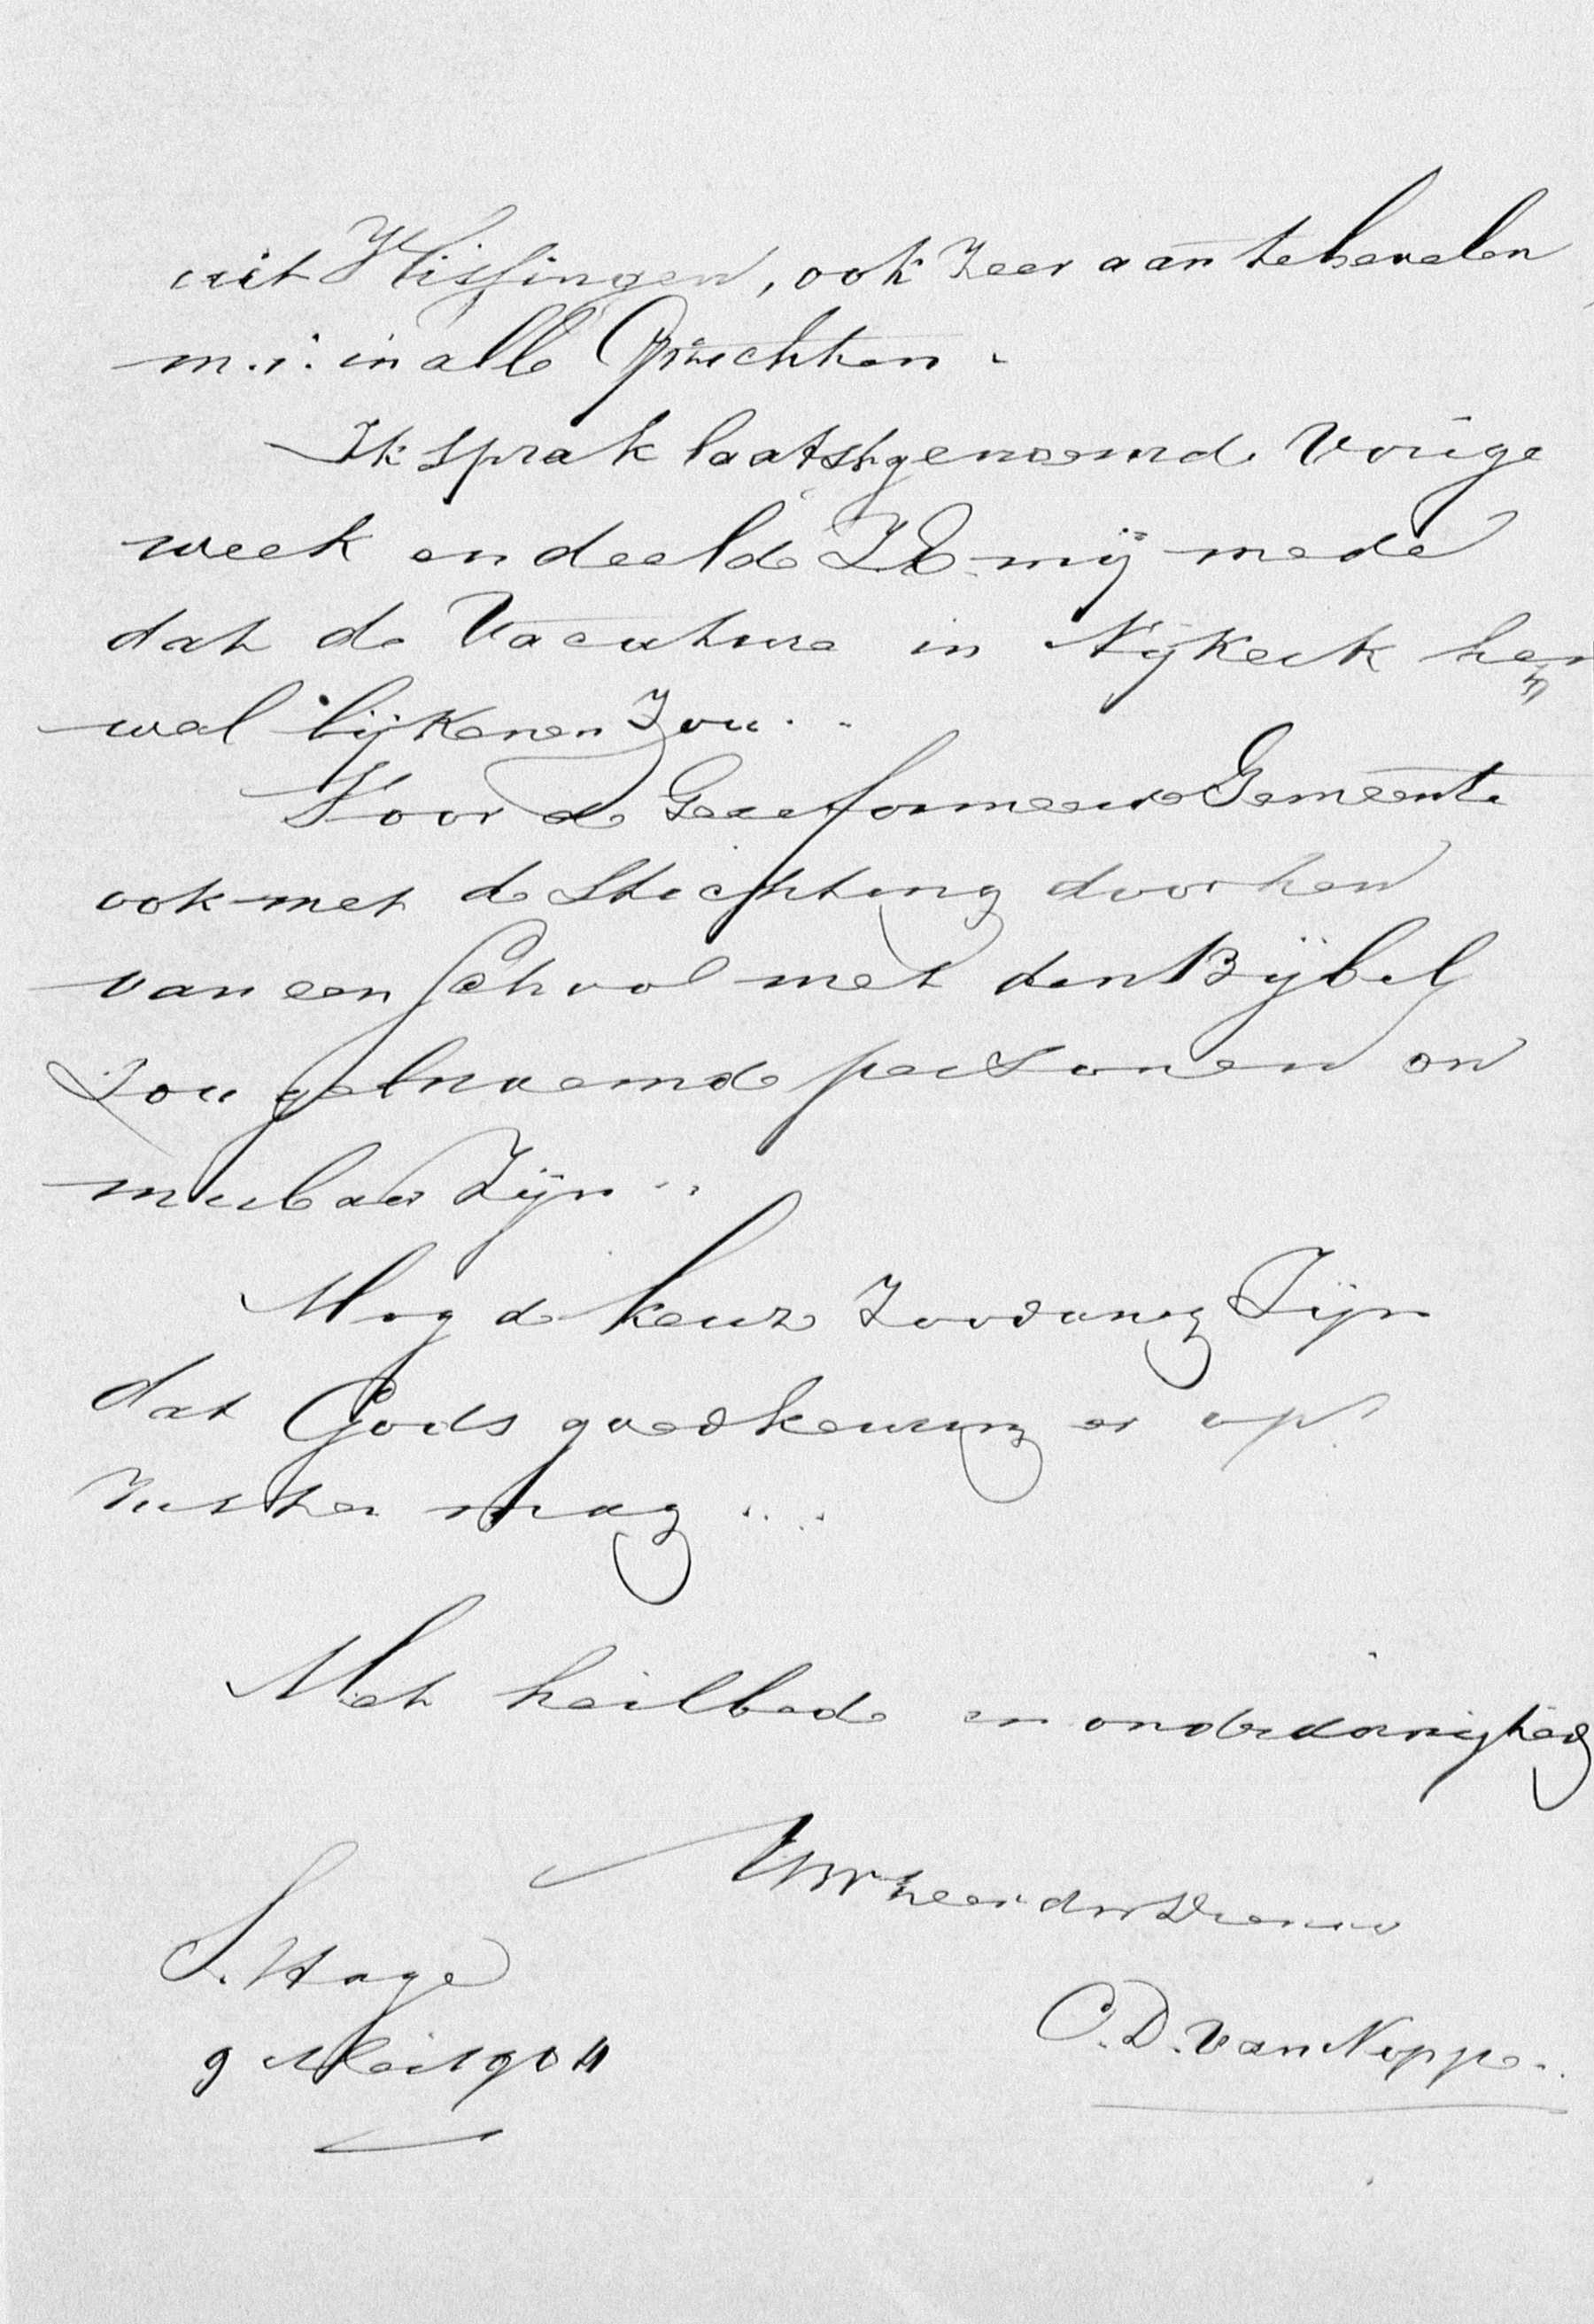 uit Vlissingen, ook zeer aan te bevelen
m.i. in alle opzichten.
Ik sprak laatstgenoemde vorige
week en deelde ZE. mij mede
dat de Vacature in Nijkerk hem
wel lijkenen zou..
Voor de Gereformeerde Gemeente
ook met de Stichting door hen
van een School met den Bijbel
zou genoemde personen on
misbaar zijn..
Mog de keuze zoodanig zijn
dat Gods goedkeuring er op
rusten mag....
Met heilbede en onderdanigheid
UW heer dw Dienaar
S. Hage
9 Mei 1904
C. D. van Noppe.